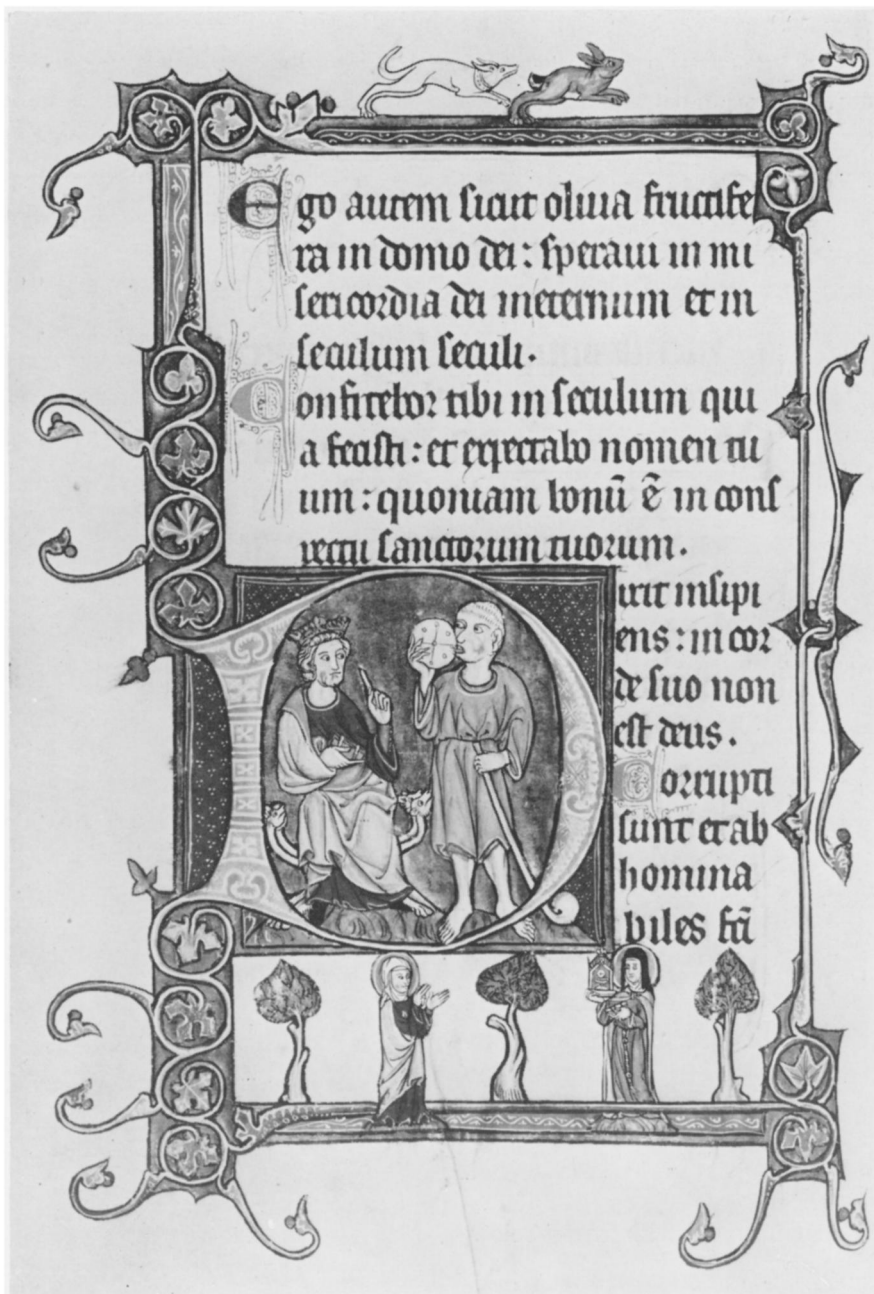 Ego autem sicut oliua fructife
ra in domo dei : speraui in mi
sericordia dei ineternum et in
seculum seculi .
Confitebor tibi in seculum qui
a fecisti : et expectabo nomen tu
um : quoniam bonū ē in cons
pectu sanctorum tuorum .
Dixit insipi
ens : in cor
de suo non
est deus .
Corrupti
sunt et ab
homina
biles fcī